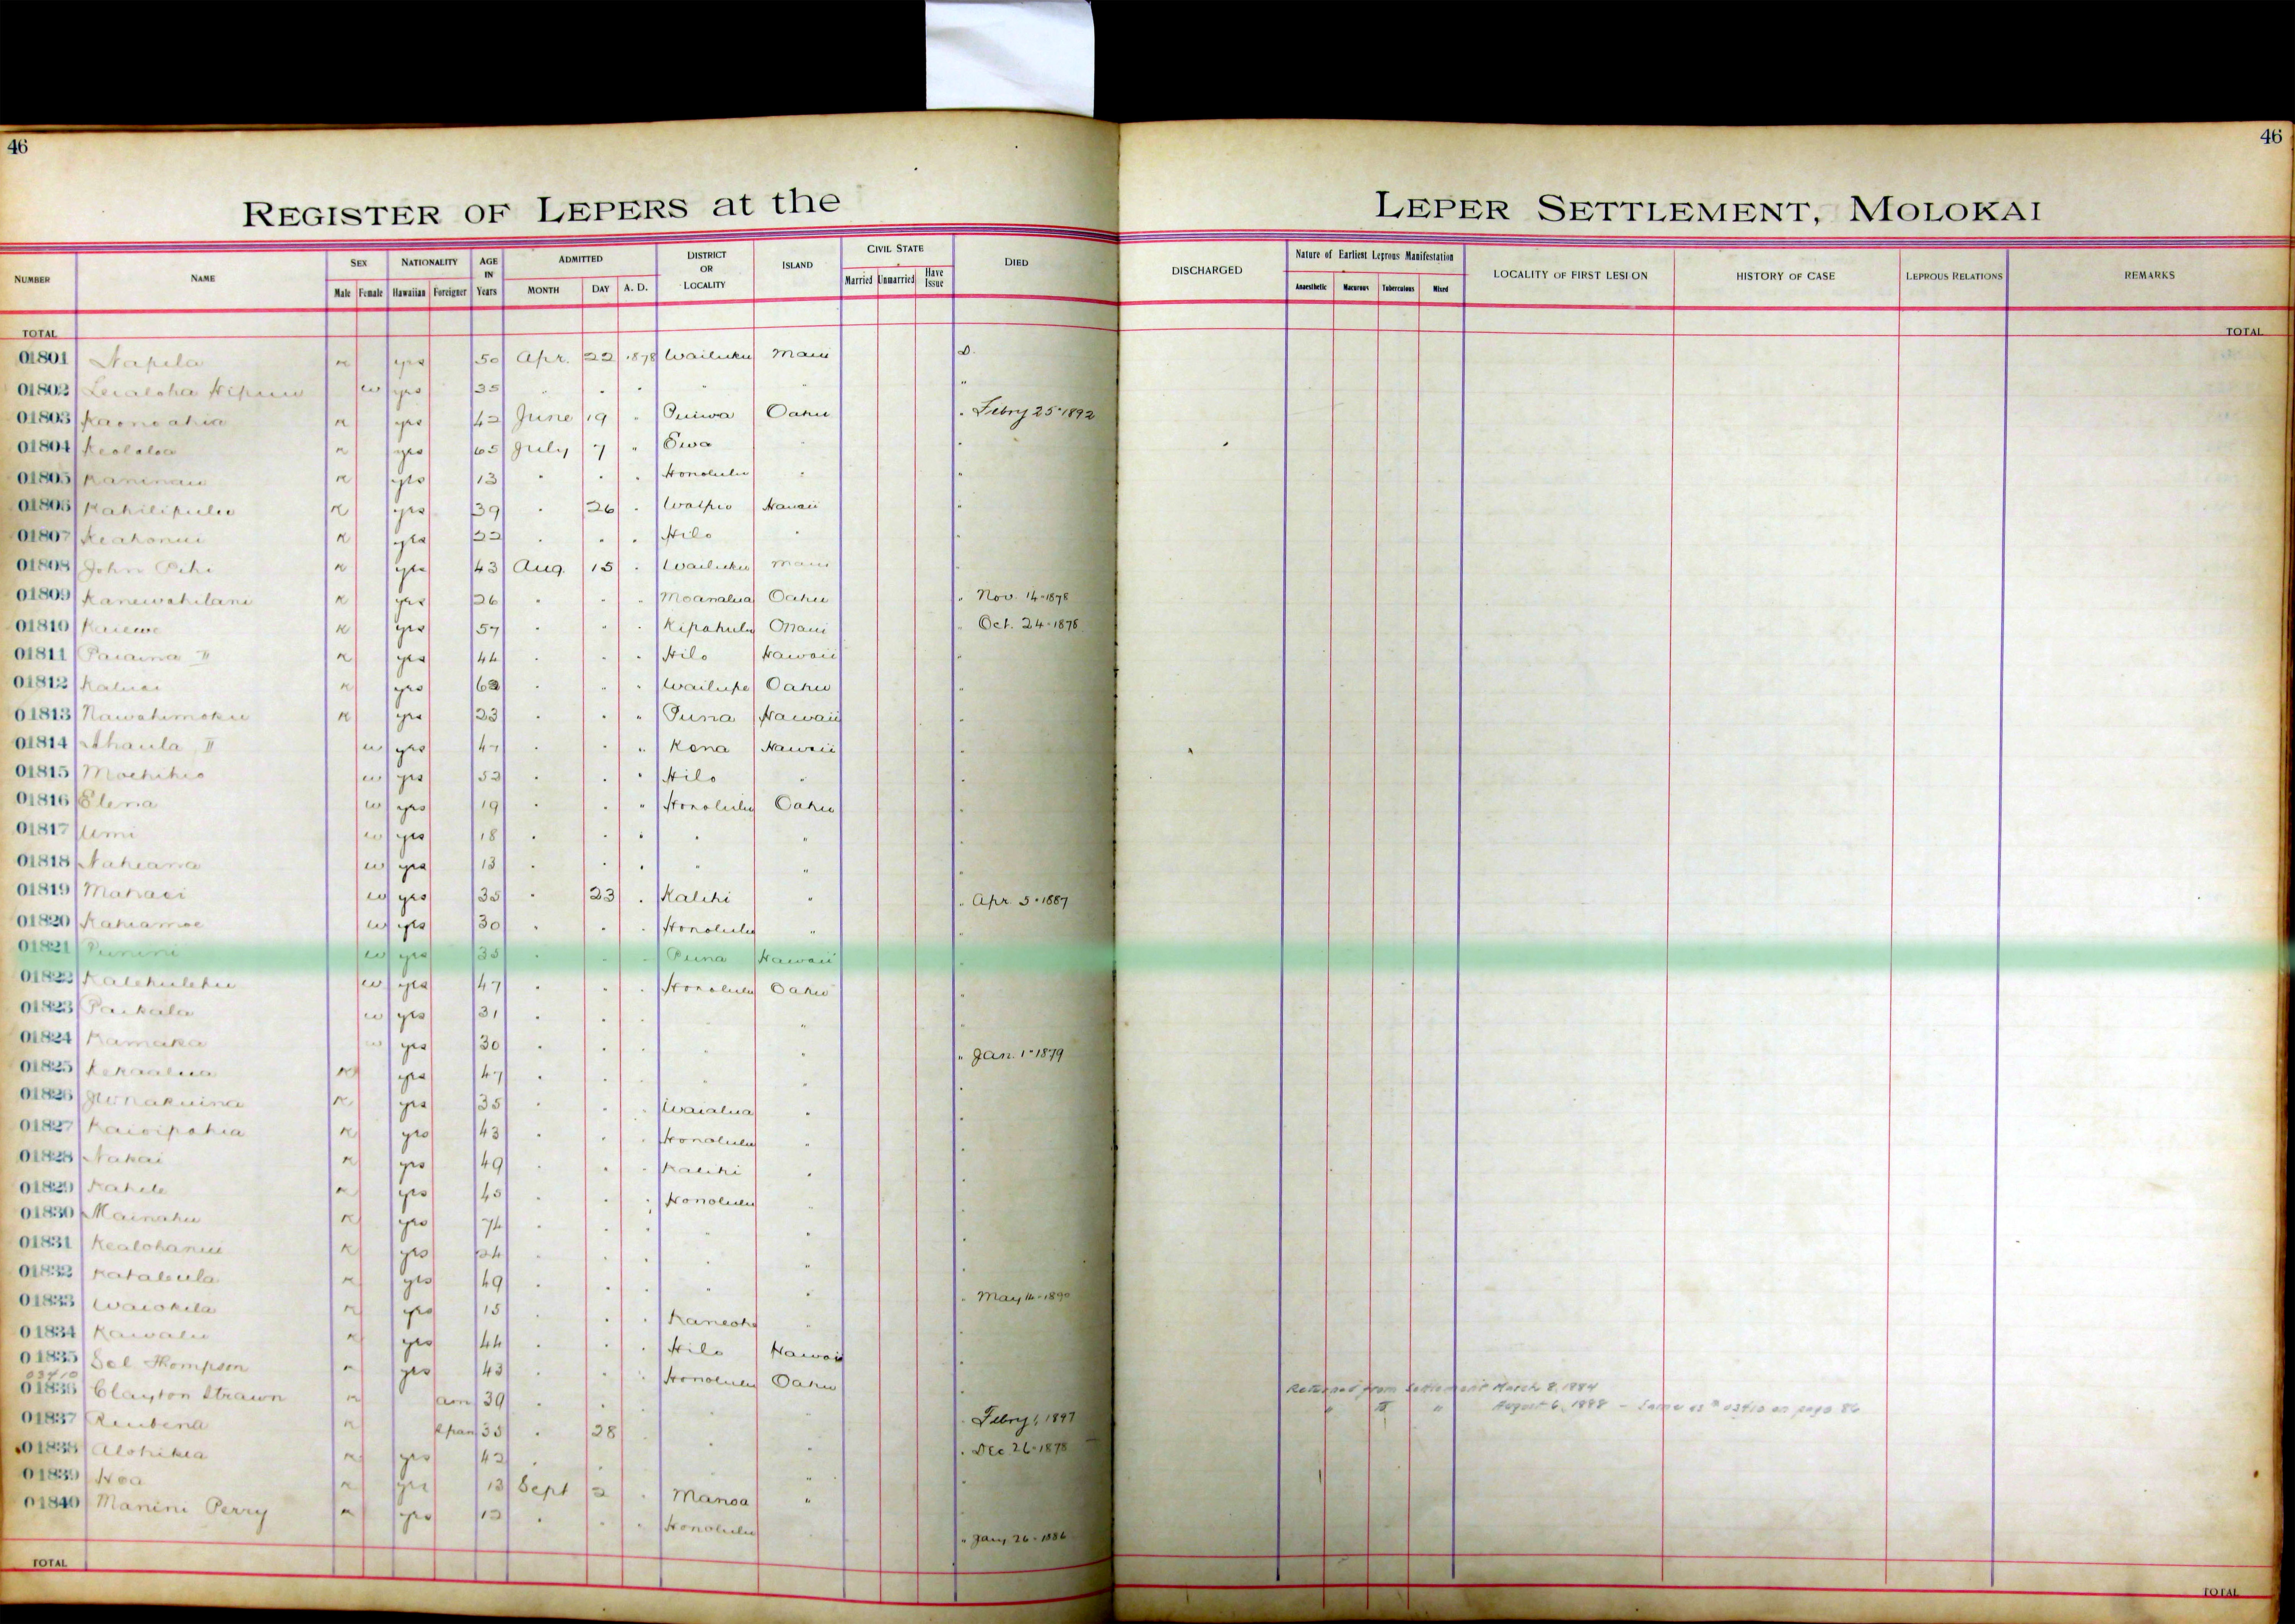 46
46
REGISTER OF LEPERS at the LEPER SETTLEMENT, MOLOKAI
NUMBER NAME SEX Male Female NATIONALITY Hawaiian Foreigner AGE IN Years ADMITTED MONTH DAY A. D. DISTRICT OR LOCALITY ISLAND CIVIL STATE Married Unmarried Have Issue DIED DISCHARGED Nature of Earliest Leprous Manifestation Anaesthetic Macurous Tuberculous Mixed LOCALITY OF FIRST LESION HISTORY OF CASE LEPROUS RELATIONS REMARKS
TOTAL TOTAL
01801 Napela m yes 50 Apr. 22 1878 Wailuku Maui D.
01802 Leialoha w yes 35 " " " " " "
01803 Kaonoahia m yes 42 June 19 " Puiwa Oahu " Febry 25-1892
01804 Keololoa m yes 65 July 7 " Ewa " "
01805 Kaninau m yes 13 " " " Honolulu " "
01806 Kahilipulu m yes 39 " 26 " Waipio Hawaii "
01807 Keahonui m yes 22 " " " Hilo " "
01808 John m yes 43 Aug. 15 " Wailuku Maui "
01809 Kanewahilani m yes 26 " " " Moanalua Oahu " Nov. 14-1878
01810 Kaiewe m yes 57 " " " Kipahulu Maui " Oct. 24-1878
01811 Paiaina II m yes 44 " " " Hilo Hawaii "
01812 Kaluai m yes 62 " " " Wailupe Oahu "
01813 Nawahimoku m yes 23 " " " Puna Hawaii "
01814 Ahaula II w yes 47 " " " Kona Hawaii "
01815 w yes 52 " " " Hilo " "
01816 Elena w yes 19 " " " Honolulu Oahu "
01817 Umi w yes 18 " " " " " "
01818 Naheana w yes 13 " " " " " "
01819 Mahaei w yes 35 " 23 " Kalihi " " Apr. 5-1887
01820 Kahiamoe w yes 30 " " " Honolulu " "
01821 Punini w yes 35 " " " Puna Hawaii "
01822 Kalehulehu w yes 47 " " " Honolulu Oahu "
01823 Paikala w yes 31 " " " " "
01824 Kamaka w yes 30 " " " " " " Jan. 1-1879
01825 Kekaalua m yes 47 " " " " " "
01826 m yes 35 " " " Waialua " "
01827 Kaioipohia m yes 43 " " " Honolulu " "
01828 Nakai m yes 49 " " " Kalihi " "
01829 Kahele m yes 45 " " " Honolulu " "
01830 Mainahu m yes 74 " " " " " "
01831 Kealohanui m yes 24 " " " " " "
01832 m yes 49 " " " " " " May 14-1890
01833 Waiokila m yes 15 " " " Kaneohe " "
01834 Kawalu m yes 44 " " " Hilo Hawaii "
01835 Sol Thompson m yes 43 " " " Honolulu Oahu "
03410
01836 Clayton Strawn m am 39 " " " " " " Febry 1, 1897 Returned from Settlement March 8, 1884
" " " August 6, 1888 - Same as # 03410 on page 86
01837 Reubena m Span 35 " 28 " " " " Dec 26-1878
01838 Alohikea m yes 42 " " " " " "
01839 Hoa m yes 13 Sept 2 " Manoa " "
01840 Manini Perry m yes 12 " " " Honolulu " " Jany 26-1886
TOTAL TOTAL